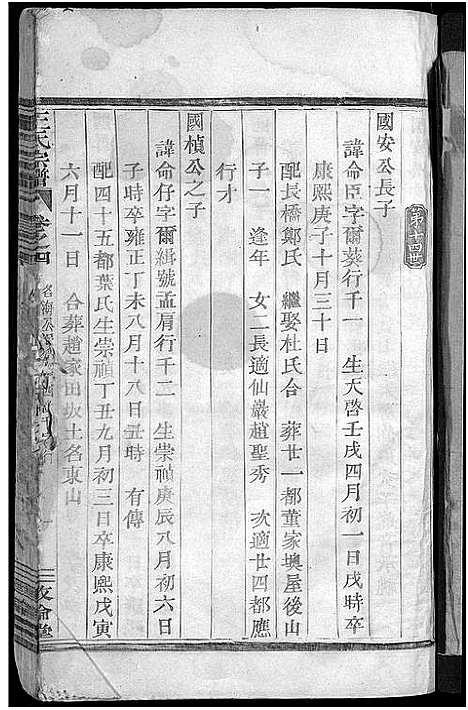 第十四世
國安公長子
諱命臣字爾葵行千一　生天啓壬戌四月初一日戌時卒
康熙庚子十月三十日
配長橋鄭氏　繼娶杜氏合　葬廿一都董家墺屋後山
子一　逢年　女二長適仙巖趙聖秀　次適廿四都應
行才
國楨公之子
諱命仔字爾緝號孟肩行千二　生崇禎庚辰八月初六日
子時卒雍正丁未八月十八日丑時　有傳
配四十五都葉氏生崇禎丁丑九月初三日卒康熙戊寅
六月十一日　合葬趙家田坎土名東山
王氏宗譜
卷之四